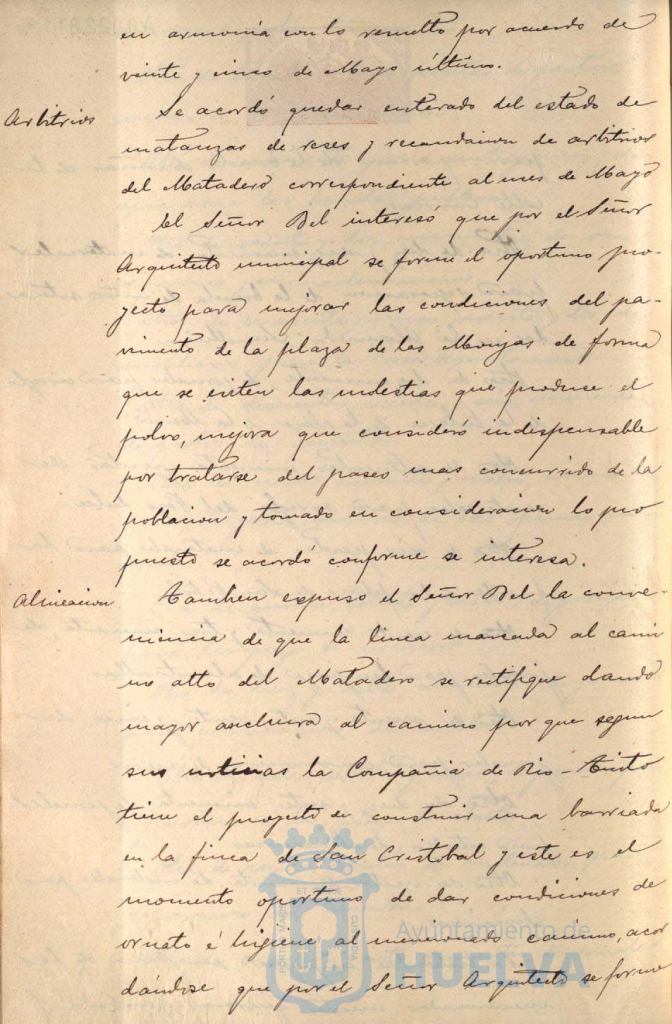 en armonía con lo resuelto por acuerdo de
veinte y cinco de Mayo último.
Arbitrios
Se acordó quedar enterado del estado de
matanzas de reses y recaudacion de arbitrios
del Matadero correspondiente al mes de Mayo
El Señor Bel interesó que por el Señor
Arquitecto municipal se forme el oportuno pro-
yecto para mejorar las condiciones del pa-
vimento de la plaza de las Monjas de forma
que se eviten las molestias que produce el
polvo, mejora que consideró indispensable
por tratarse del paseo mas concurrido de la
poblacion y tomado en consideracion lo pro
puesto se acordó conforme se interesa.
Alineacion
Tambien espuso el Señor Bel la conve-
niencia de que la linea marcada al cami
no alto del Matadero se rectifique dando
mayor anchura al camino por que segun
sus noticias la Compañia de Rio-Tinto
tiene el proyecto de construir una barriada
en la finca de San Cristobal y este es el
momento oportuno de dar condiciones de
ornato é higiene al mencionado camino, acor
dándose que por el Señor Arquitecto se forme
Ayuntamiento de
HUELVA